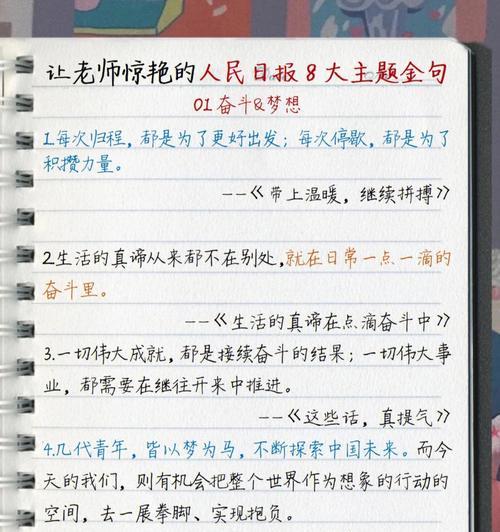 让老师惊艳的人民日报8大主题金句
01奋斗&梦想
1.每次归程，都是为了更好出发；每次停歇，都是为了
积攒力量。
--《带上温暖，继续拼搏》
2.生活的真谛从来都不在别处，就在日常一点一滴的
奋斗里。
--《生活的真谛在点滴奋斗中》
3.一切伟大成就，都是接续奋斗的结果；一切伟大事
业，都需要在继往开来中推进。
--《这些话，真提气》
4.几代青年，皆以梦为马，不断探索中国未来。而今
天的我们，则有机会把整个世界作为想象的行动的
空间，去一展拳脚、实现抱负。